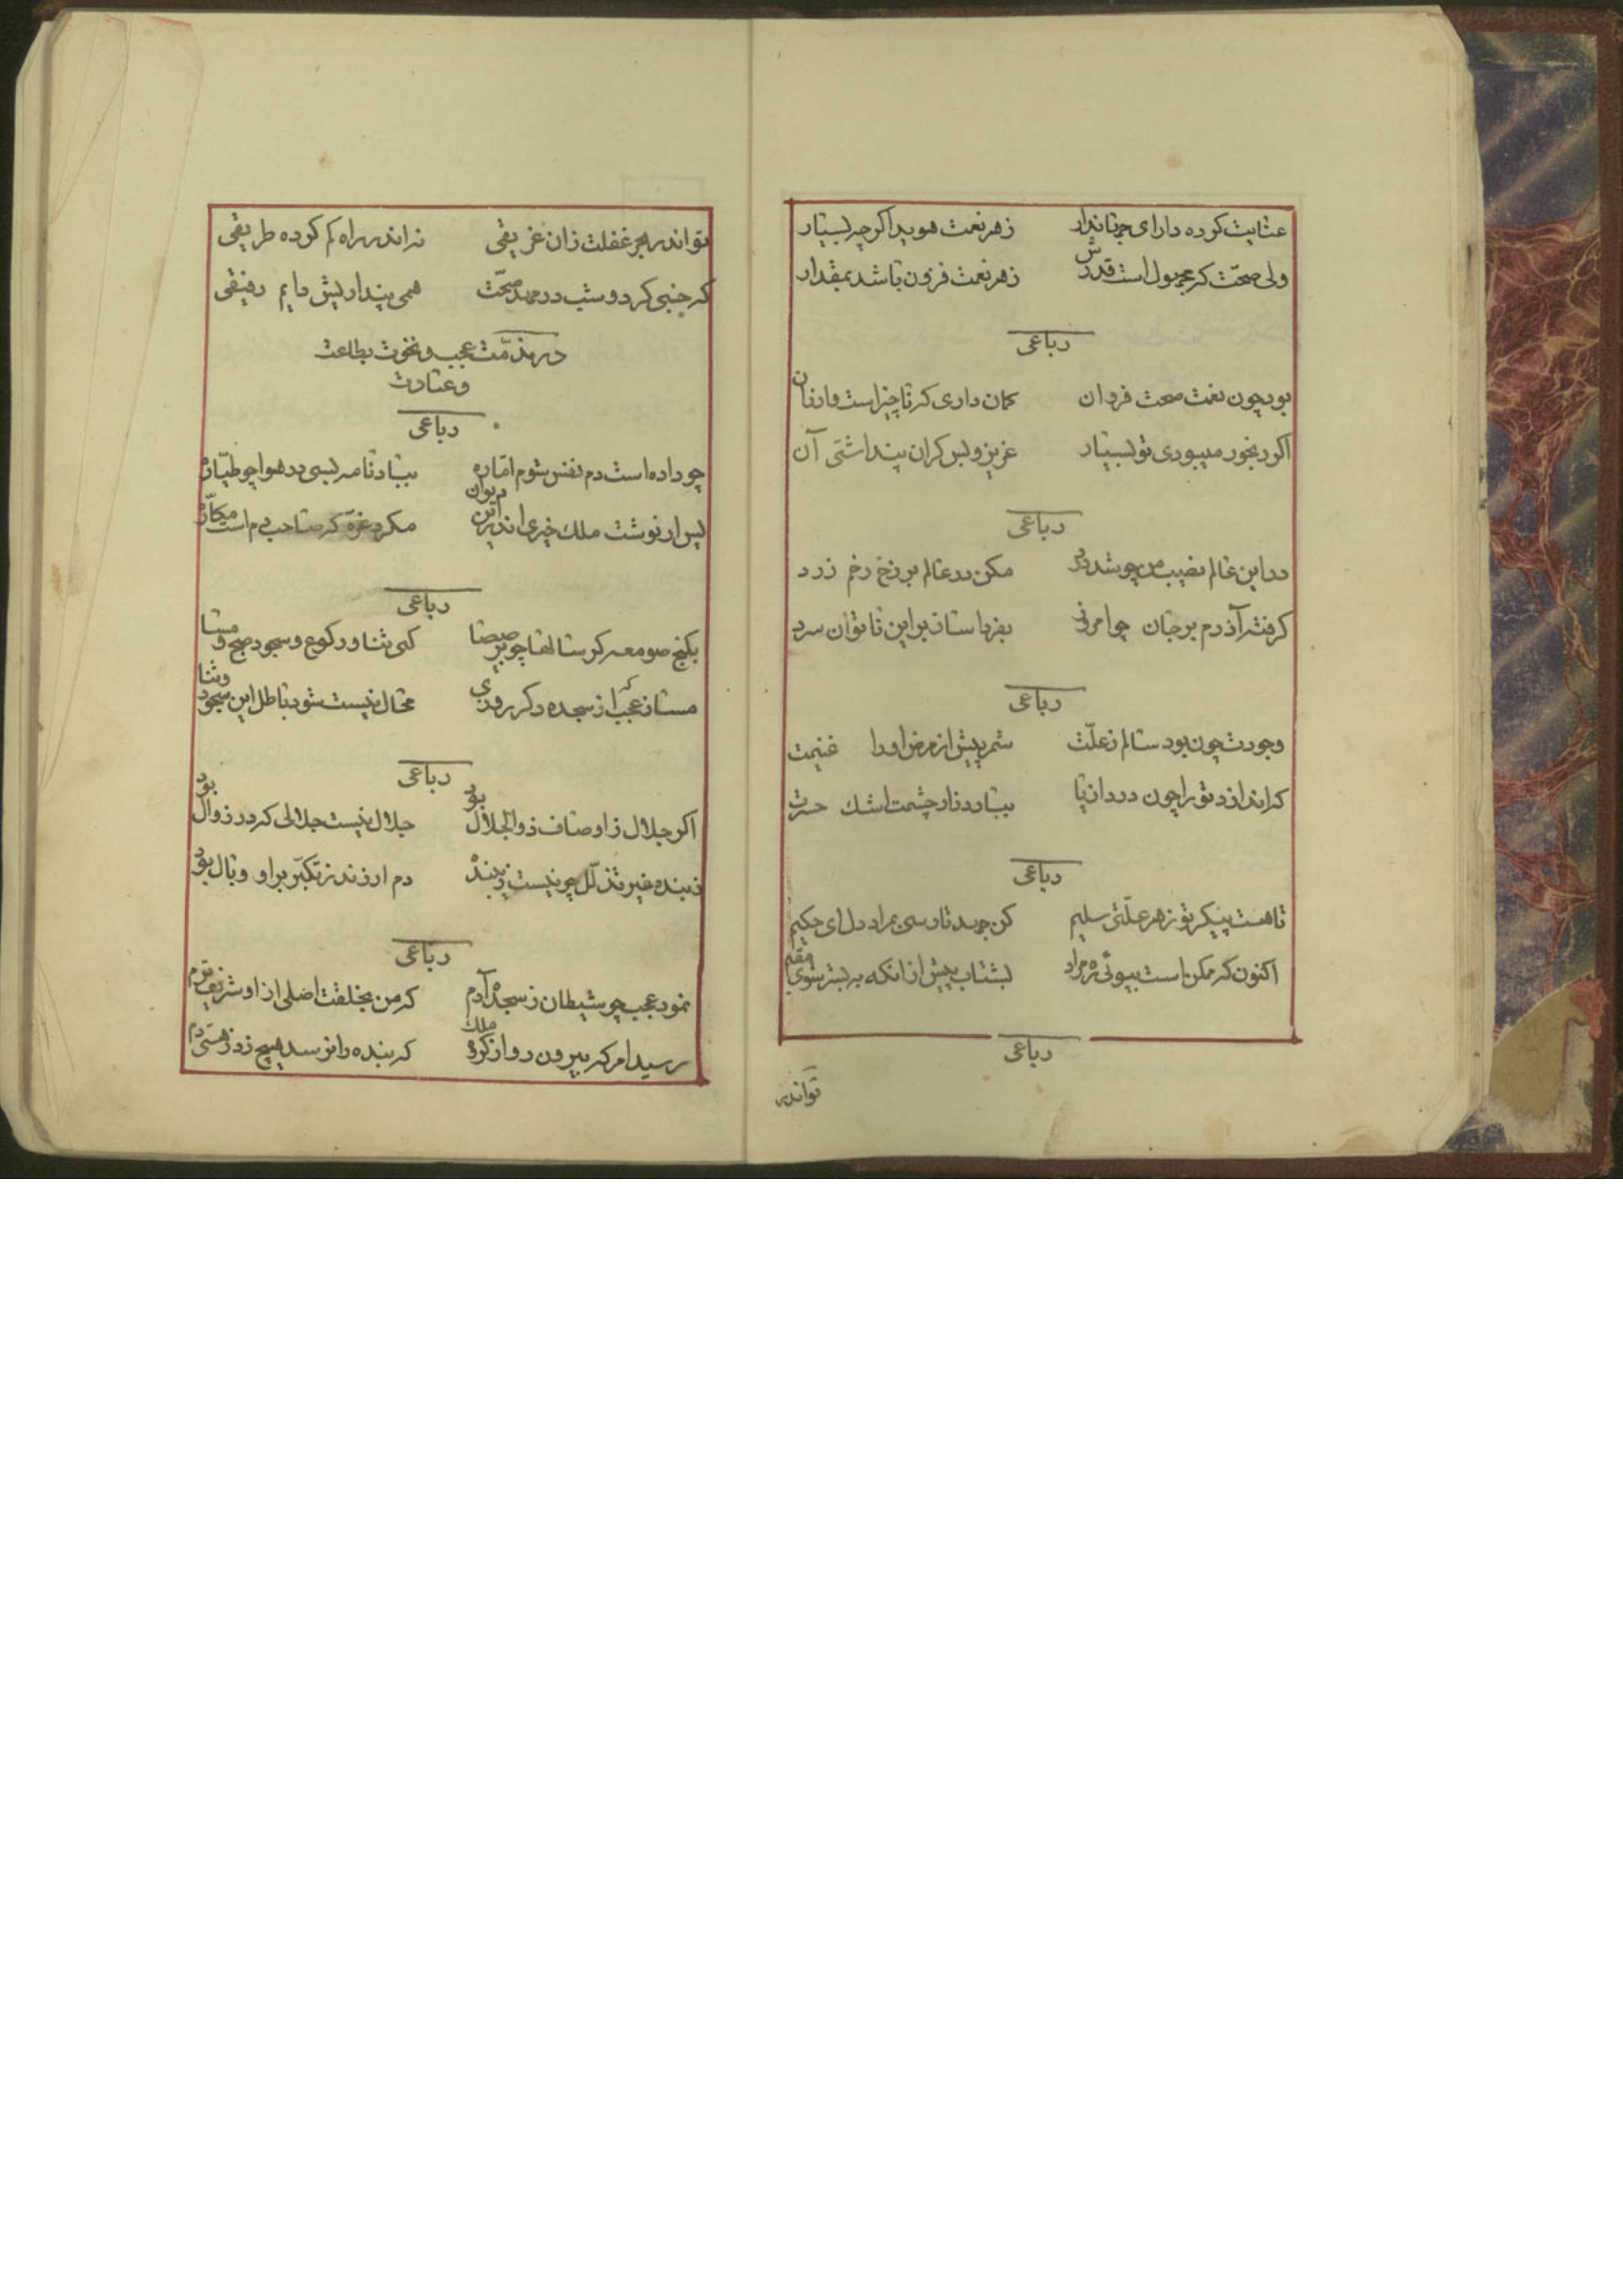 عنایت کرده دارای جهاندار زهر نعمت هویدا اگر چه بسیار
ولی صحّت که مجهول است قدرش زهر نعمت فزون باشد بمقدار
رباعی
بود چون نعمت صحت فروان کمان داری که ناچیز است وارفان
اگر رنجور میبودی تو بسیار عزیز و بس کران پنداشتی آن
رباعی
در این عالم نصیب من چو شد درد مکن در عالم برزخ رخم زرد
کرفته آذرم بر جان چو امروز بفردا ساز بر این ناتوان سرد
رباعی
وجودت چون بود سالم زعلّت شمر پیش از مرض او را غنیمت
کر اندازد تو را چون درد از پا ببارد زار چشمت اشک حسرت
رباعی
تا هست پیکر تو زهر علّتی سلیم کن جهد تا رسی بمراد دل ای حکیم
اکنون که ممکن است بپوئی ره مراد بشتاب پیش از انکه به بستر شوی مقیم
رباعی
تواندر
تو اندر بحر غفلت زان غریقی نه اندر راه کم کرده طریقی
که جنبی کرد و شب در مهد صحّت همی پنداریش دایم رفیقی
در مذمّت عجب و نخوت بطاعت
وعبادت
رباعی
چو داده است دم نفس شوم امّاره بباد نامه لسی بد هوا چو طیّاره
پس ار نوشت ملک خیری اندر این دیوان مکرد غرّه که صاحب دم است مکاره
رباعی
بکنج صومعه کر سالها چو برصیصا کنی ثنا و رکوع و سجود صبح و مسا
مساز عجب از سجده کر روزی محال نیست شود باطل این سجود و ثنا
رباعی
اکر جلال ز اوصاف ذو الجلال بود جلال نیست جلالی که در زوال بود
زبنده غیر تذلّل چو نیست زیبنده دم ار زند ز تکبّر بر او وبال بود
رباعی
نمود عجب چو شیطان ز سجده آدم که من بخلقت اصلی از او شریف ترم
رسید امر که بیرون رو از کروه ملک که بنده را نرسد هیچ زد ز هستی دم